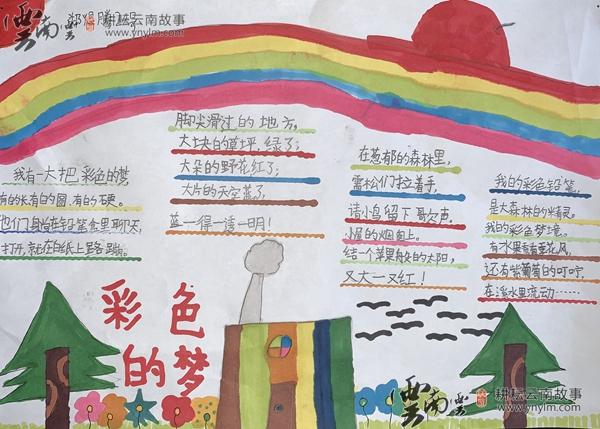 雲南
耕耘云南故事
www.ynylm.com
我有一大把彩色的梦,
有的长有的圆,有的硬。
他们躺在铅笔盒里聊天,
打开,就在白纸上
脚尖滑过的地方,
大块的草坪,绿了;
大朵的野花红了;
大片的天空蓝了,
蓝—得—透—明!
在葱郁的森林里,
雪松们拉着手,
请小鸟留下歌声。
小屋的烟囱上,
结一个苹果般的太阳,
又大一又红!
我的彩色铅笔,
是大森林的精灵。
我的彩色梦境,
有水果香有
还有紫葡萄的叮咛,
在溪水里流动……
彩色
的梦
雲南
耕耘云南故事
www.ynylm.com